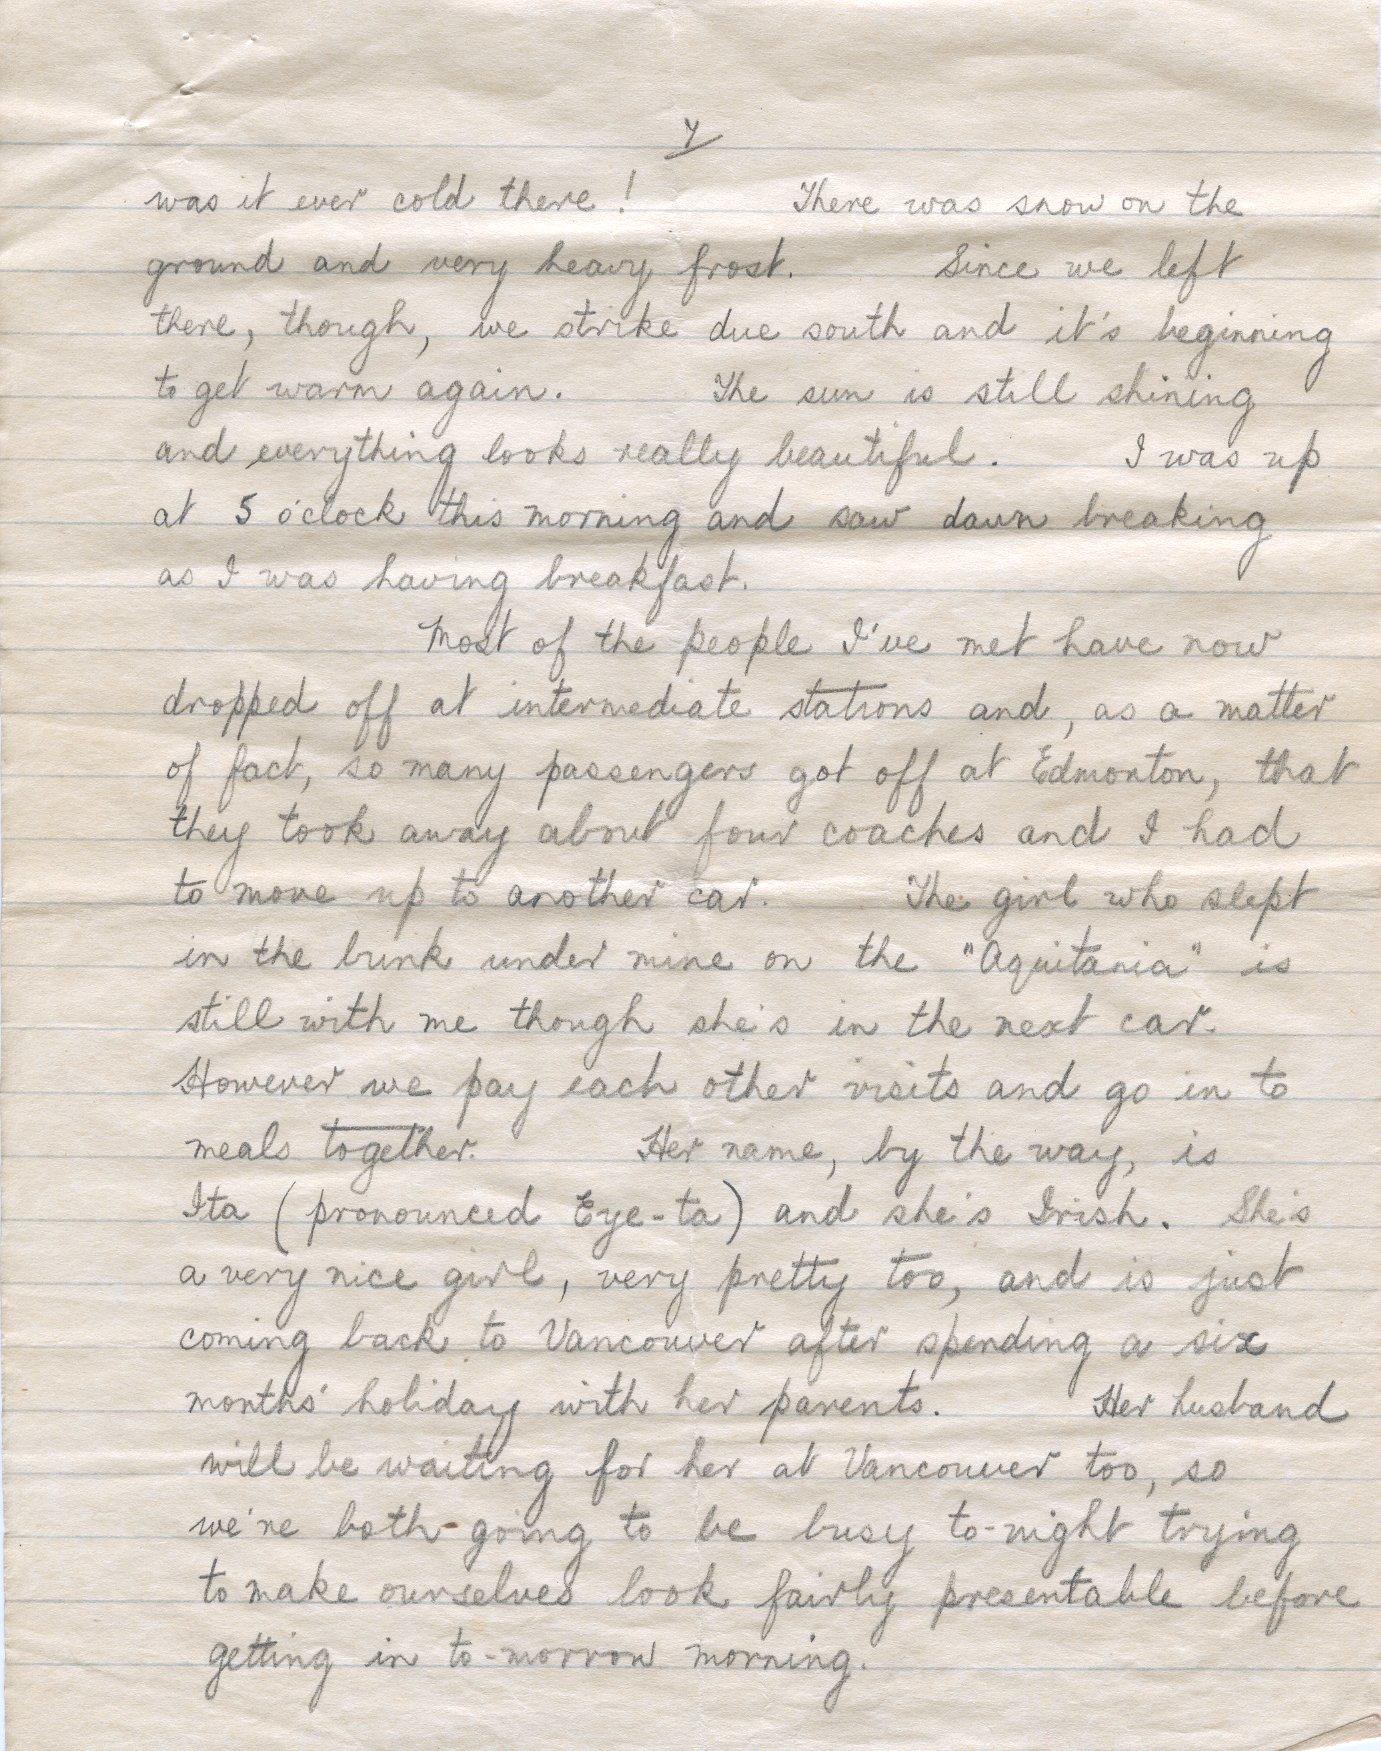 7
was it ever cold there! There was snow on the
ground and very heavy frost. Since we left
there, though, we strike due south and it's beginning
to get warm again. The sun is still shining
and everything looks really beautiful. I was up
at 5 o'clock this morning and saw dawn breaking
as I was having breakfast.
Most of the people I've met have now
dropped off at intermediate stations and, as a matter
of fact, so many passengers got off at Edmonton, that
they took away about four coaches and I had
to move up to another car. The girl who slept
in the bunk under mine on the "Aquitania" is
still with me though she's in the next car.
However we pay each other visits and go in to
meals together. Her name, by the way, is
Ita (pronounced Eye-ta) and she's Irish. She's
a very nice girl, very pretty too, and is just
coming back to Vancouver after spending a six
months' holiday with her parents. Her husband
will be waiting for her at Vancouver too, so
we're both going to be busy to-night trying
to make ourselves look fairly presentable before
getting in to-morrow morning.